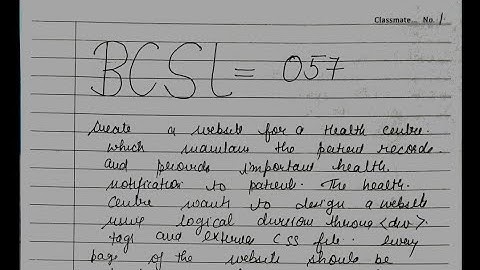 Classmate No. 1
BCSL = 057
Create a website for a Health centre.
which maintain the patient records.
and provids important health
notification to patient. The health.
Centre wants to design a website
using logical division throug <div>.
tags and external CSS file. every
page of the website should be